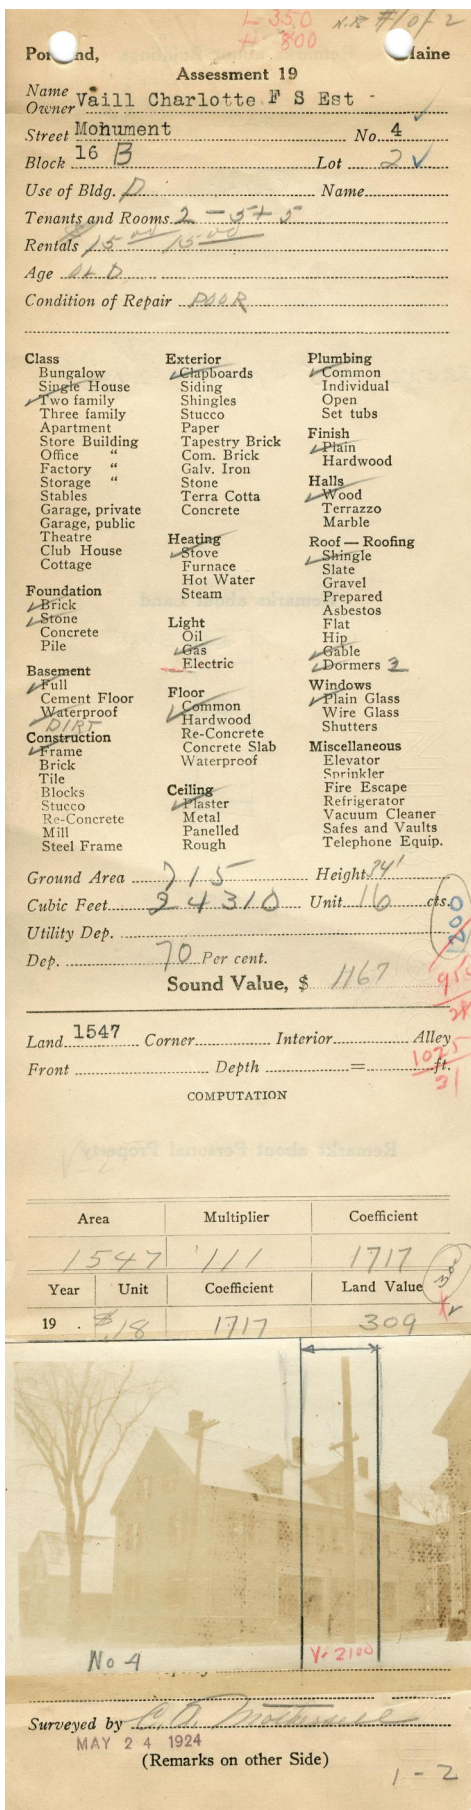 L 350
H 800
N.R #1 of 2
Portland, Maine
Assessment 19
Name
Owner Vaill Charlotte F S Est -
Street Monument No. 4
Block 16 B Lot 2
Use of Bldg. D Name
Tenants and Rooms 2 - 5 + 5
Rentals $15 00 15 00
Age OLD
Condition of Repair POOR
Class
Bungalow
Single House
Two family
Three family
Apartment
Store Building
Office "
Factory "
Storage "
Stables
Garage, private
Garage, public
Theatre
Club House
Cottage
Foundation
Brick
Stone
Concrete
Pile
Basement
Full
Cement Floor
Waterproof
DIRT
Construction
Frame
Brick
Tile
Blocks
Stucco
Re-Concrete
Mill
Steel Frame
Exterior
Clapboards
Siding
Shingles
Stucco
Paper
Tapestry Brick
Com. Brick
Galv. Iron
Stone
Terra Cotta
Concrete
Heating
Stove
Furnace
Hot Water
Steam
Light
Oil
Gas
Electric
Floor
Common
Hardwood
Re-Concrete
Concrete Slab
Waterproof
Ceiling
Plaster
Metal
Panelled
Rough
Plumbing
Common
Individual
Open
Set tubs
Finish
Plain
Hardwood
Halls
Wood
Terrazzo
Marble
Roof — Roofing
Shingle
Slate
Gravel
Prepared
Asbestos
Flat
Hip
Gable
Dormers 2
Windows
Plain Glass
Wire Glass
Shutters
Miscellaneous
Elevator
Sprinkler
Fire Escape
Refrigerator
Vacuum Cleaner
Safes and Vaults
Telephone Equip.
Ground Area 715 Height 34'
Cubic Feet 24310 Unit 16 cts.
1200
Utility Dep.
Dep. 70 Per cent.
Sound Value, $ 1167
Land 1547 Corner Interior Alley
1025
31
Front Depth = ft.
COMPUTATION
Area Multiplier Coefficient
1547 111 1717
Year Unit Coefficient Land Value
19 $.18 1717 309
No 4
V-2100
Surveyed by C. A.
MAY 24 1924
(Remarks on other Side)
1-2